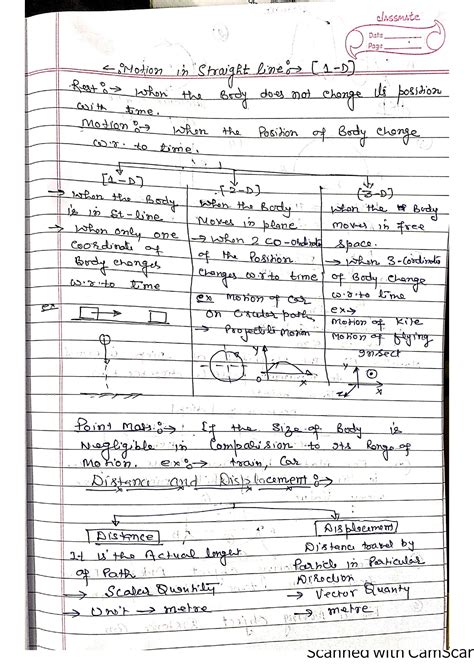 classmate
Date
Page
Motion in Straight line :→ [1-D]
Rest :→ When the Body does not change its position
with time.
Motion :→ When the Position of Body change
w.r. to time.
[1-D]
→ When the Body
is in St-line
→ When only one
Coordinate of
Body changes
w.r. to time
ex
[2-D]
When the Body
Moves in plane
→ When 2 CO-ordinate
of the Position
changes w.r to time
ex Motion of Car
on Circular path
→ Projectile Motion
y
x
o
[3-D]
When the Body
moves in free
space.
→ When 3-Cordinate
of Body Change
w.r. to time
ex →
Motion of Kite
Motion of flying
Insect
y
x
z
Point Mass :→ If the Size of Body is
Negligible in Comparision to its Range of
Motion. ex :→ train, Car
Distance and Displacement :→
Distance
It is the Actual lenght
of Path
→ Scalar Quantity
→ Unit → metre
Displacement
Distance travel by
Particle in Particular
Direction
→ Vector Quanty
→ metre
Scanned with CamScan